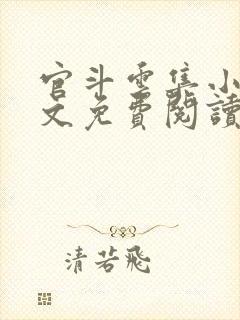 官斗雲集小
文免費閱讀
清若飛